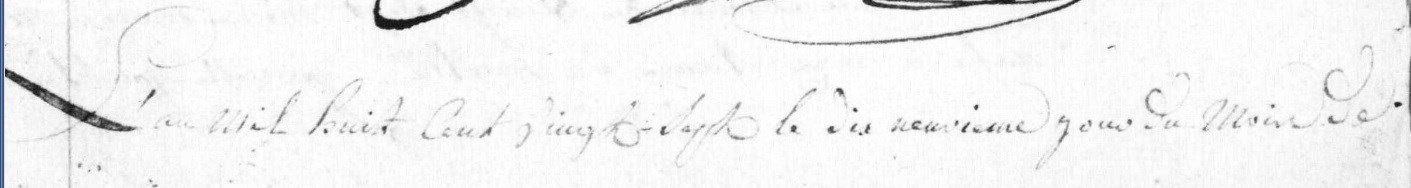 L'an Mil huit Cent vingt Sept le dix neuvieme jour du Mois de